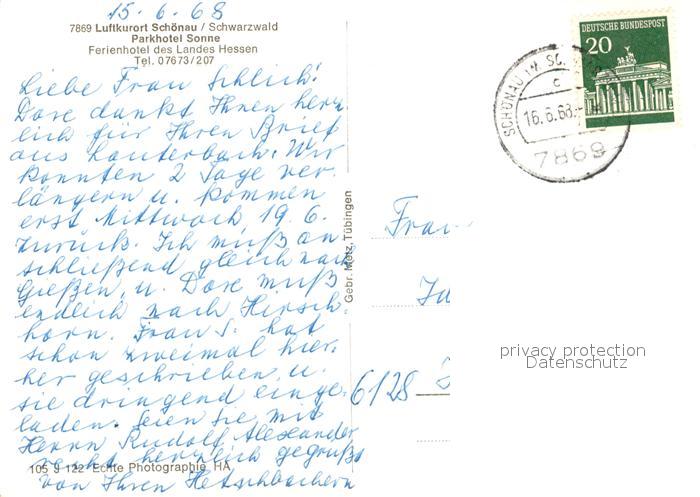 15.6.68
7869 Luftkurort Schönau / Schwarzwald
Parkhotel Sonne
Ferienhotel des Landes Hessen
Tel. 07673/207
Liebe Frau Schlich!
Dore dankt Ihnen herz-
lich für Ihren Brief
aus Lauterbach. Wir
konnten 2 Tage ver-
längern u. kommen
erst Mittwoch 19.6.
zurück. Ich muß an-
schließend gleich nach
Gießen, u. Dore muß
endlich nach Hirsch-
horn. Frau S. hat
schon zweimal hier-
her geschrieben, u.
sie dringend einge-
laden. Seien Sie mit
Herrn Rudolf Alexander
recht herzlich gegrüßt
von Ihren Hetschbachern
105 9 122 Echte Photographie HA
Gebr. Metz, Tübingen
DEUTSCHE BUNDESPOST
20
SCHÖNAU
c
16.6.68
7869
Frau
6128
privacy protection
Datenschutz